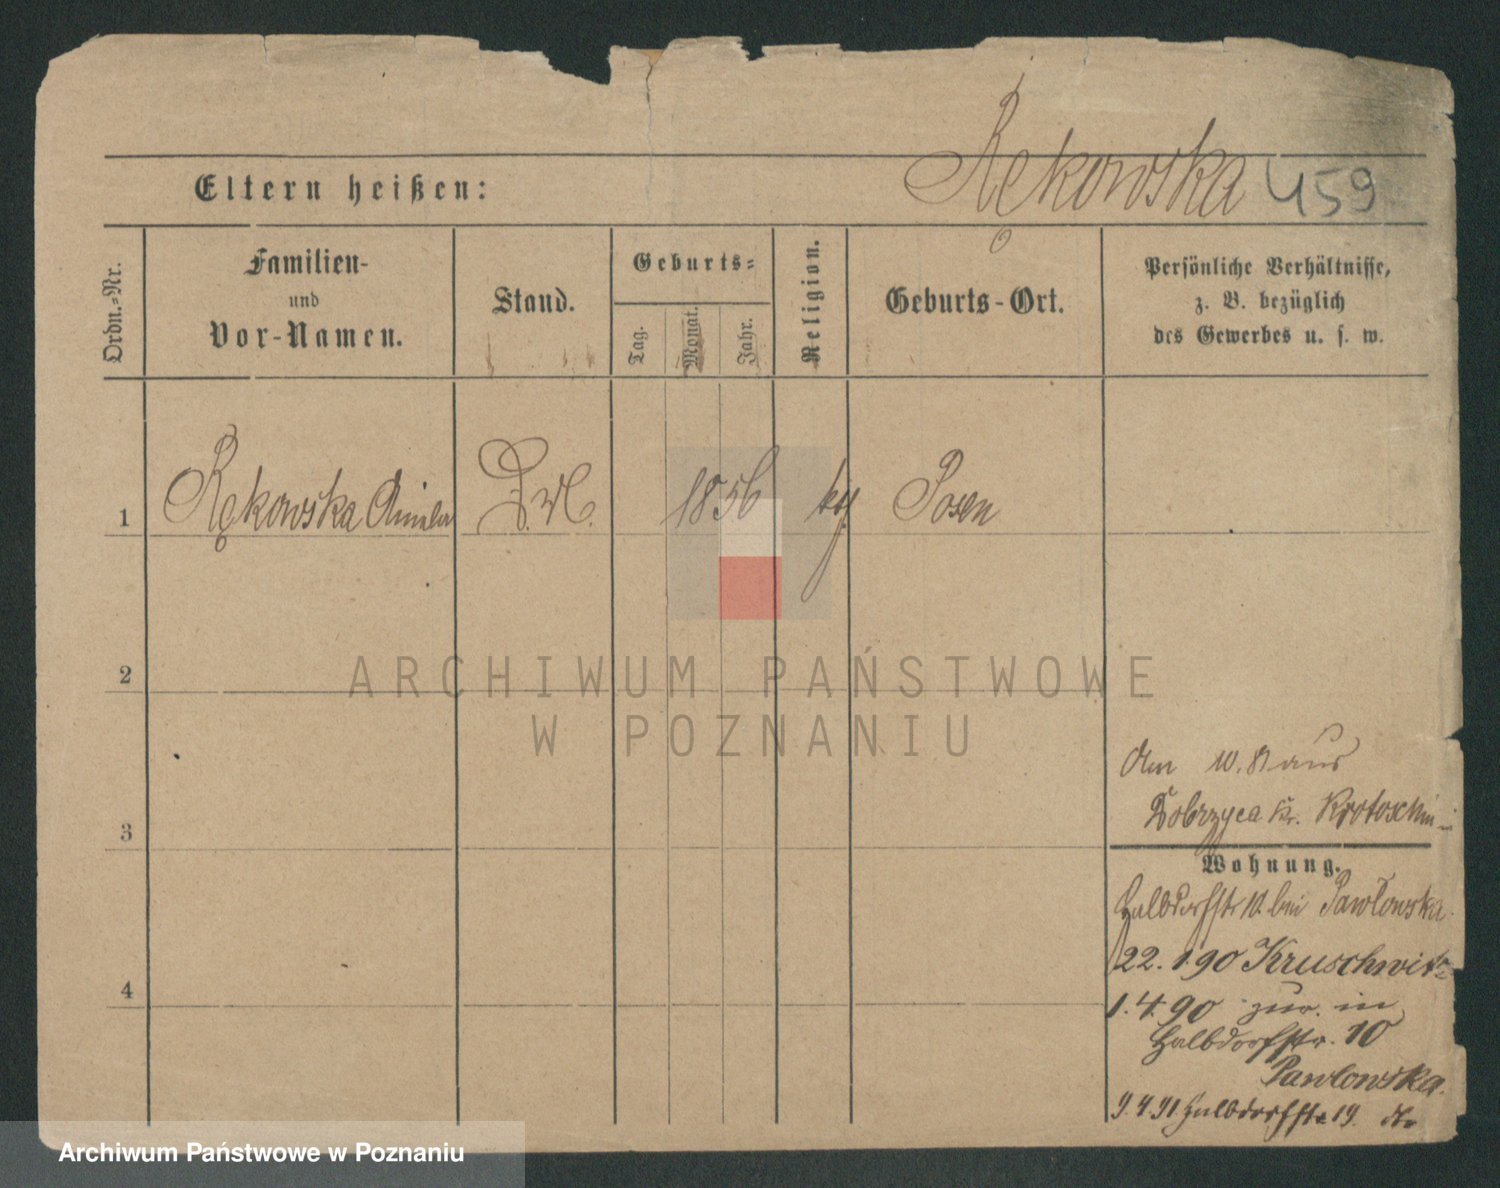 Rękowska 459
Eltern heißen:
Ordn.-Nr.
Familien-
und
Vor-Namen.
Stand.
Geburts-
Tag.
Monat.
Jahr.
Religion.
Geburts-Ort.
Persönliche Verhältnisse,
z. B. bezüglich
des Gewerbes u. s. w.
1 Rękowska 1856 Posen
2
3
4
ARCHIWUM PAŃSTWOWE
W POZNANIU
aus
Dobrzyca Kr. Krotoschin
Wohnung.
Halbdorfstr bei Pawlowska
22.1.90 Kruschwitz
1.4.90 zur. in
Halbdorfstr. 10
Pawlowska.
9.4.91 Halbdorfstr 19
Archiwum Państwowe w Poznaniu